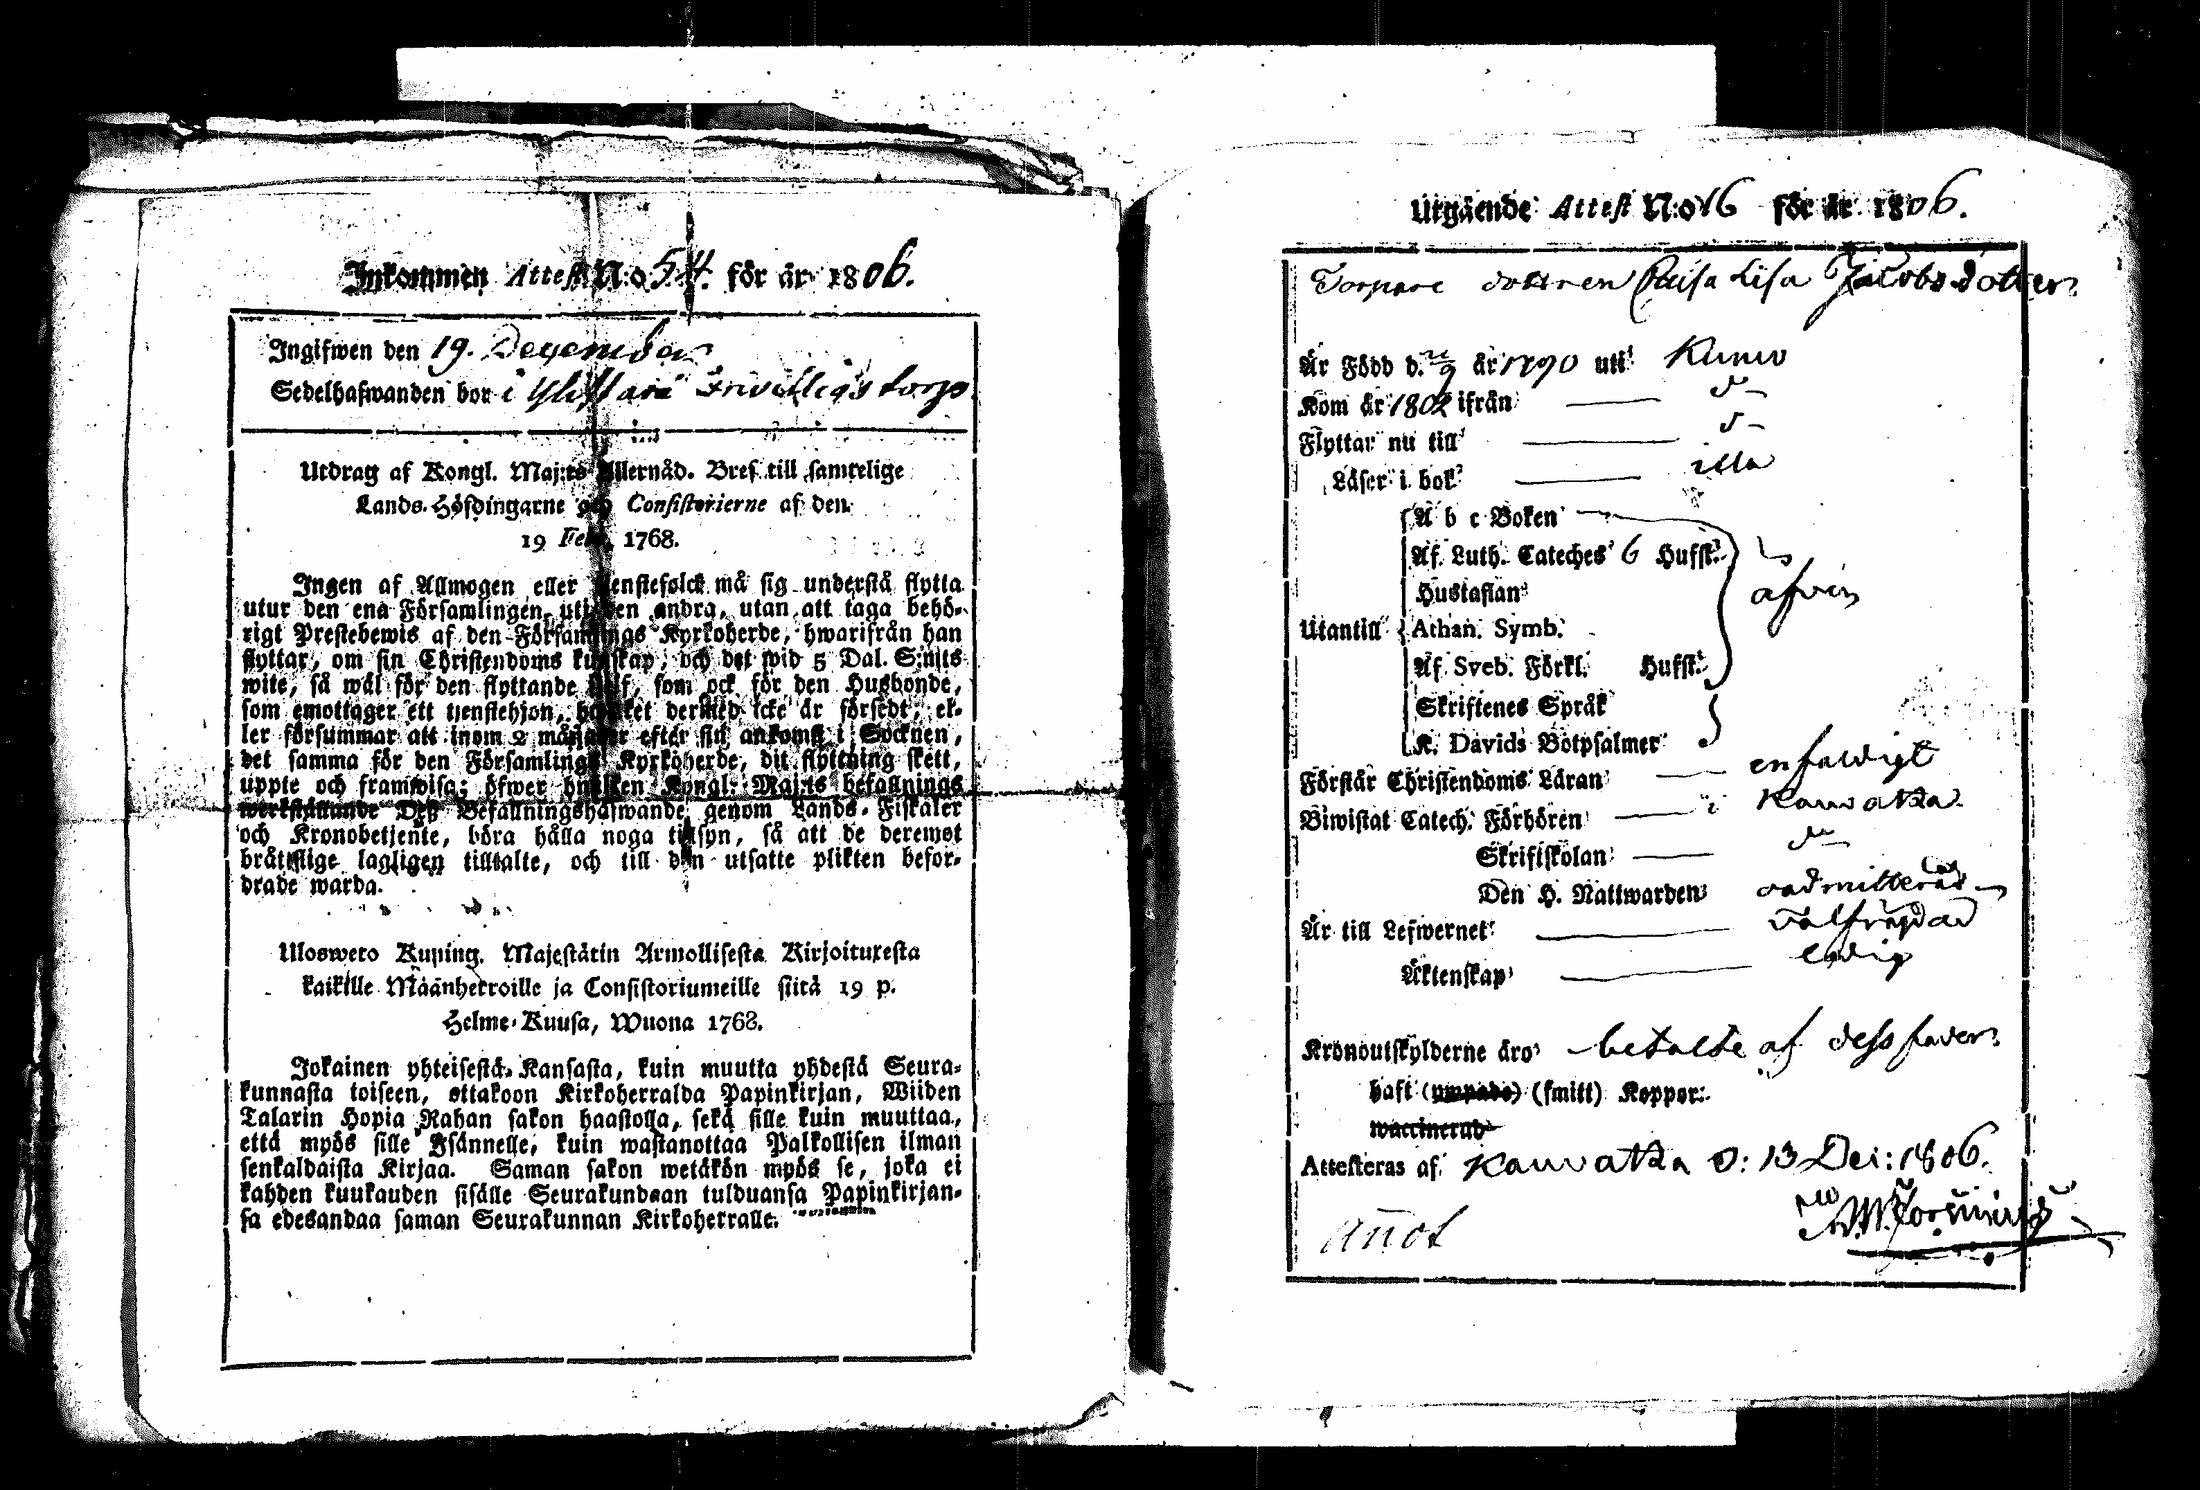 Inkommen Attest N:o 54. för år 1806.
Ingifwen den 19. December
Sedelhafwanden bor i
Utdrag af Kongl. Maj:ts Allernåd. Bref till samtelige
Lands-Höfdingarne och Consistorierne af den
19 Febr. 1768.
Ingen af Allmogen eller tienstefolck må sig understå flytta
utur den ena Församlingen uti den andra, utan att taga behö-
rigt Prestebewis af den Församlings Kyrkoherde, hwarifrån han
flyttar, om sin Christendoms kunskap, och det wid 5 Dal. S:mts
wite, så wäl för den flyttande sielf, som ock för den Husbonde,
som emottager ett tjenstehjon, hwilket dermed icke är försedt, el-
ler försummar att inom 2 månader efter sin ankomst i Socknen,
det samma för den Församlings Kyrkoherde, dit flyttning skett,
uppte och framwisa; öfwer hwilken Kongl. Maj:ts befallnings
werkställande Deß Befallningshafwande genom Lands-Fiskaler
och Kronobetjente, böra hålla noga tillsyn, så att de deremot
bråttslige lagligen tilltalte, och till den utsatte plikten befor-
drade warda.
Uloswero Kuning. Majestätin Armollisesta Kirjoituxesta
kaikille Määnherroille ja Consistoriumeille siitä 19 p.
Helme-Kuusa, Wuona 1768.
Jokainen yhteisestä Kansasta, kuin muutta yhdestä Seura-
kunnasta toiseen, ottakoon Kirkoherralda Papinkirjan, Wiiden
Talarin Hopia Rahan sakon haastolla, sekä sille kuin muuttaa,
että myös sille Isännelle, kuin wastanottaa Palkollisen ilman
senkaldaista Kirjaa. Saman sakon wetäkön myös se, joka ei
kahden kuukauden sisälle Seurakundaan tulduansa Papinkirjan-
sa edesandaa saman Seurakunnan Kirkoherralle.
Utgående Attest N:o 16 för år 1806.
Torpare dottren Caisa Lisa Jacobsdotter
Är Född d. år 1790 uti Kumo
Kom år 1802 ifrån d-
Flyttar nu till d-
Läser i bok illa
A b c Boken
Af Luth. Cateches 6 Hufst.
Hustaflan äfven
Utantill Athan. Symb.
Af Sveb. Förkl. Hufst.
Skriftenes Språk
K. Davids Botpsalmer
Förstår Christendoms Läran enfaldigt
Biwistat Catech. Förhören i Kauvatza
Skriftskolan d-
Den H. Nattwarden oadmitterad
Är till Lefwernet välfräjdad
Äktenskap ledig
Kronoutskylderne äro betalte af dess fader
haft (ympade) (smitt) Koppor.
waccinerad
Attesteras af Kauvatza d: 13 Dec: 1806.